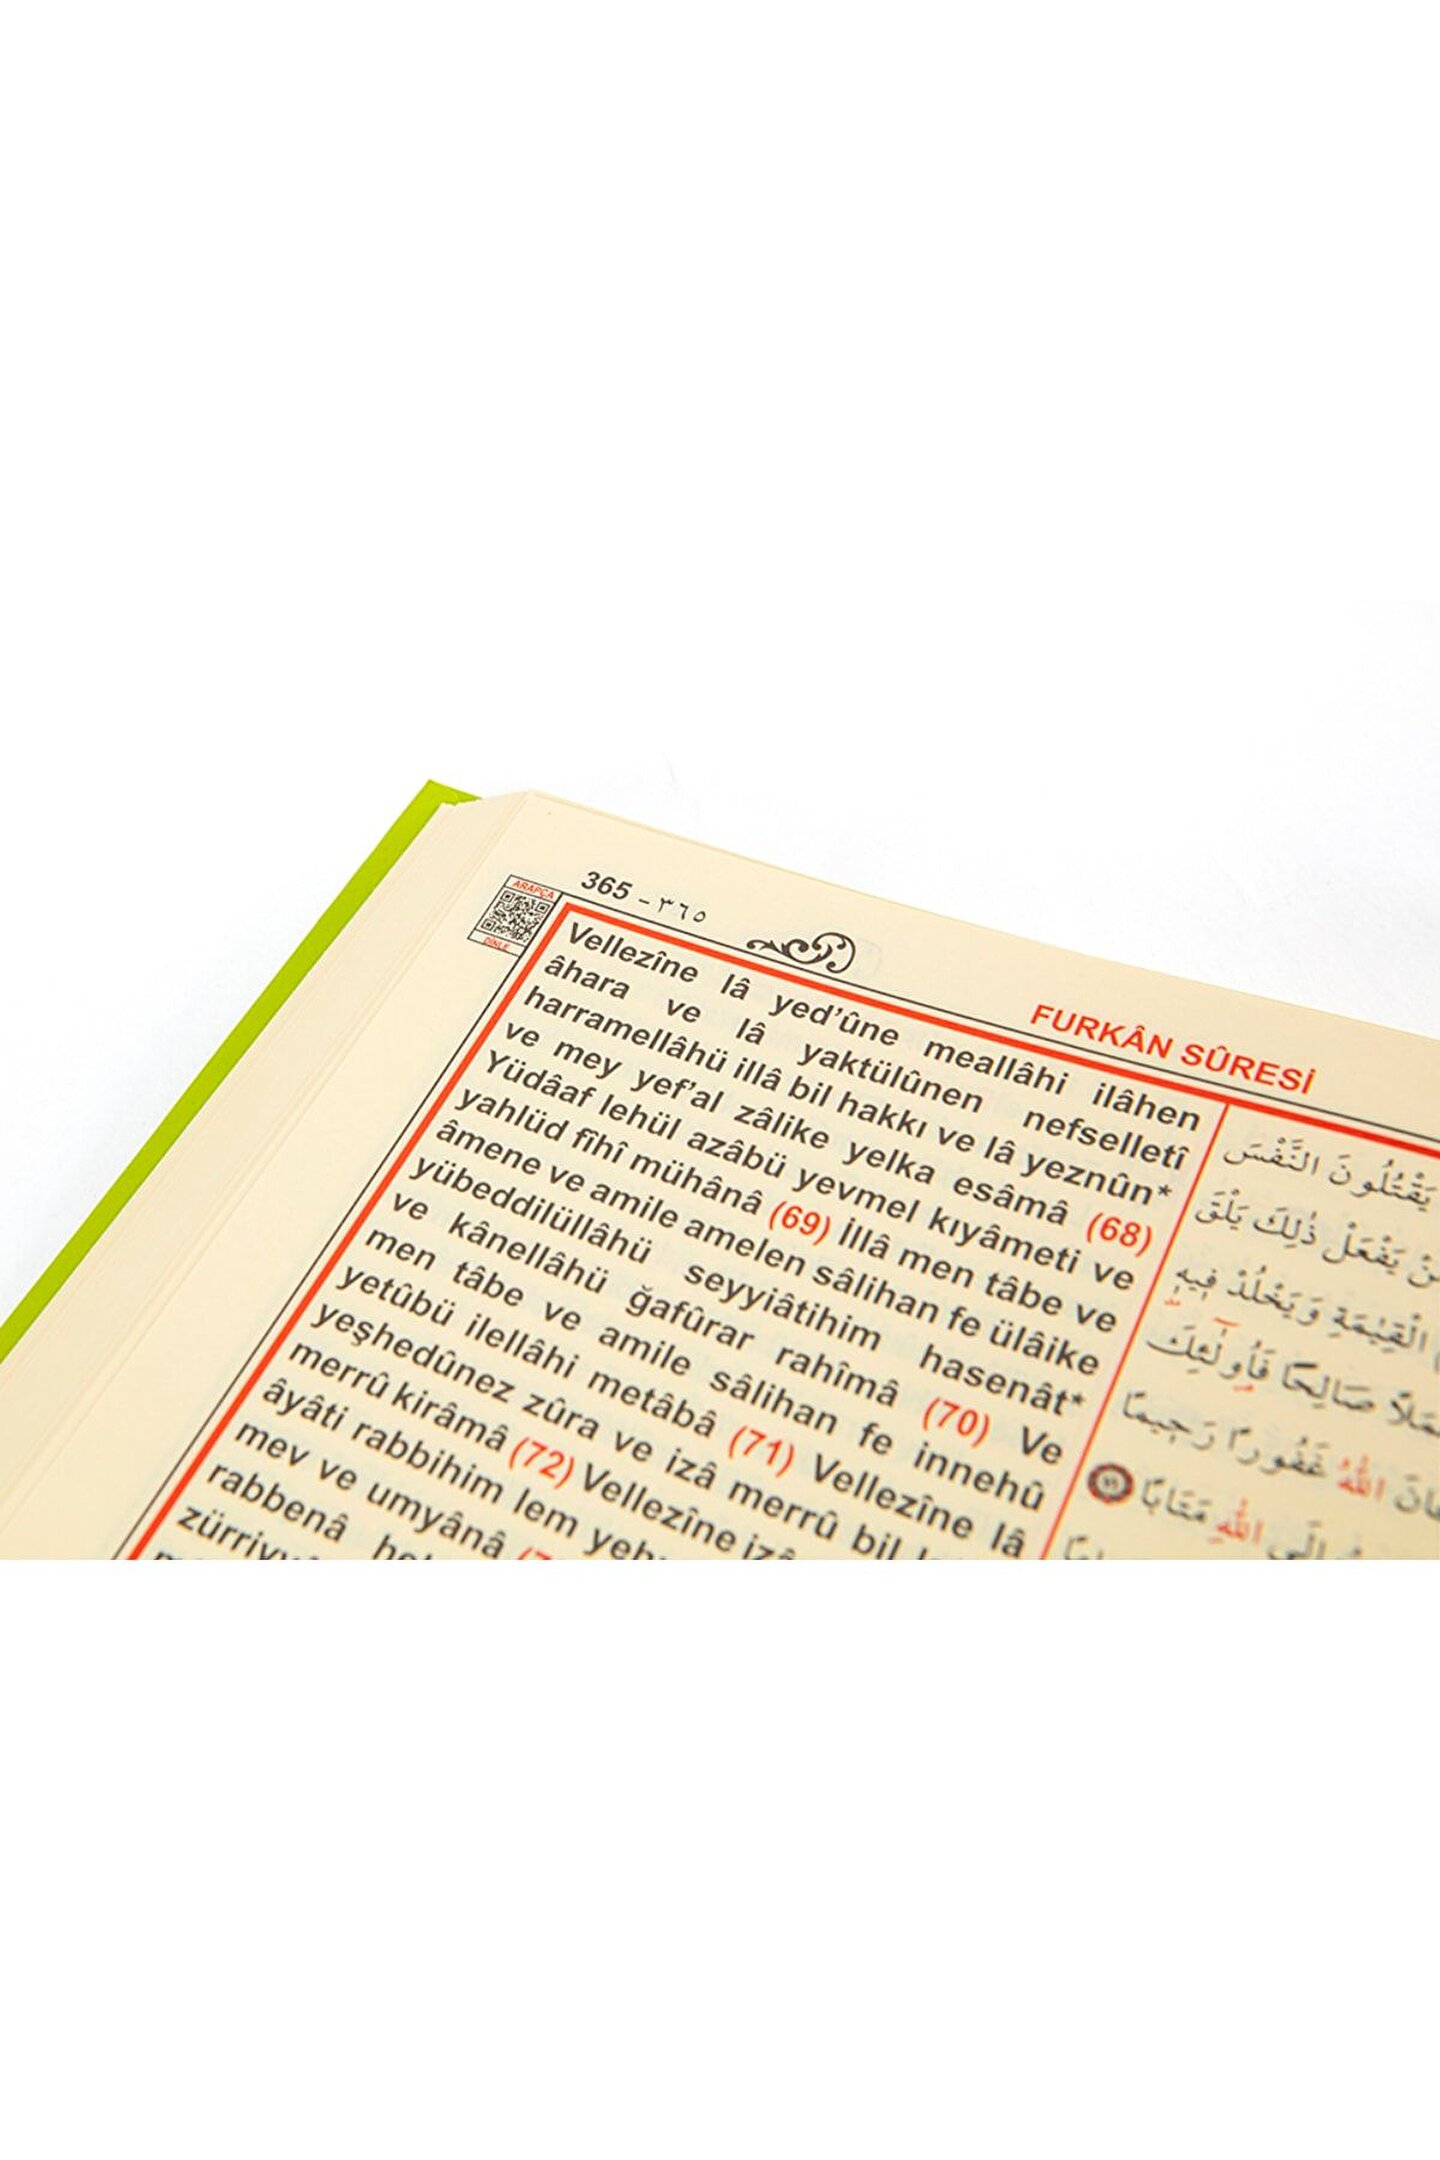 ARAPÇA
DİNLE
365 - ٣٦٥
FURKÂN SÛRESİ
Vellezîne lâ yed’ûne meallâhi ilâhen
âhara ve lâ yaktülûnen nefselletî
harramellâhü illâ bil hakkı ve lâ yeznûn*
ve mey yef’al zâlike yelka esâmâ (68)
Yüdâaf lehül azâbü yevmel kıyâmeti ve
yahlüd fîhî mühânâ (69) İllâ men tâbe ve
âmene ve amile amelen sâlihan fe ülâike
yübeddilüllâhü seyyiâtihim hasenât*
ve kânellâhü ğafûrar rahîmâ (70) Ve
men tâbe ve amile sâlihan fe innehû
yetûbü ilellâhi metâbâ (71) Vellezîne lâ
yeşhedûnez zûra ve izâ merrû bil
merrû kirâmâ (72) Vellezîne izâ
âyâti rabbihim lem
mev ve umyânâ
rabbenâ
يَقْتُلُونَ النَّفْسَ
يَفْعَلْ ذٰلِكَ يَلْقَ
الْقِيٰمَةِ وَيَخْلُدْ فِيهٖ
صَالِحًا فَاُو۬لٰٓئِكَ
اللّٰهُ غَفُورًا رَحِيمًا
اِلَى اللّٰهِ مَتَابًا